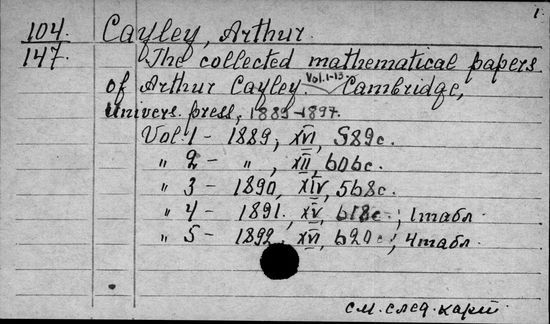 1.
104. Cayley, Arthur.
147. The collected mathematical papers
of Arthur Cayley. Vol. 1-13. Cambridge,
Univers. press, 1889-1897.
Vol. 1 - 1889, XVI, 589 c.
" 2 - ", XII, 606 c.
" 3 - 1890, XIV, 568 c.
" 4 - 1891. XV, 618 c.; 1 табл.
" 5 - 1892, XVI, 620 c.; 4 табл.
см. след. карт.